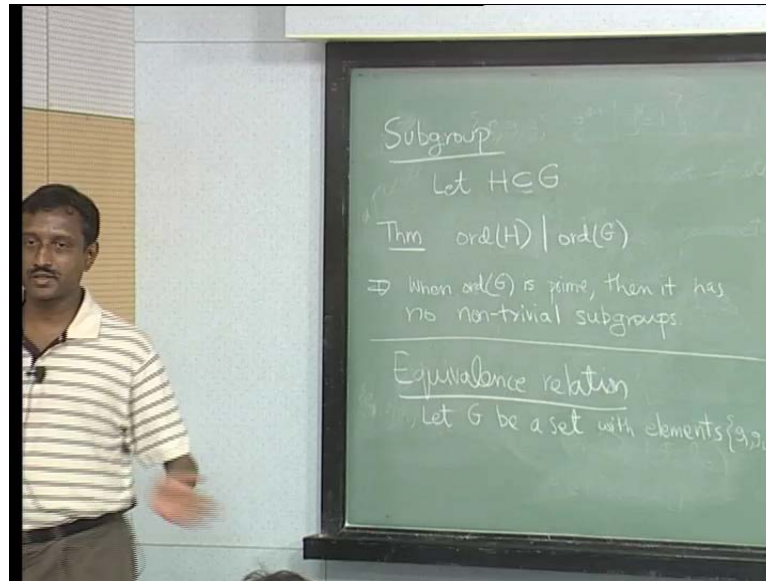 Subgroup
Let H ⊆ G
Thm ord(H) | ord(G)
⇒ When ord(G) is prime, then it has
no non-trivial subgroups.
Equivalence relation
Let G be a set with elements {g₁, g₂